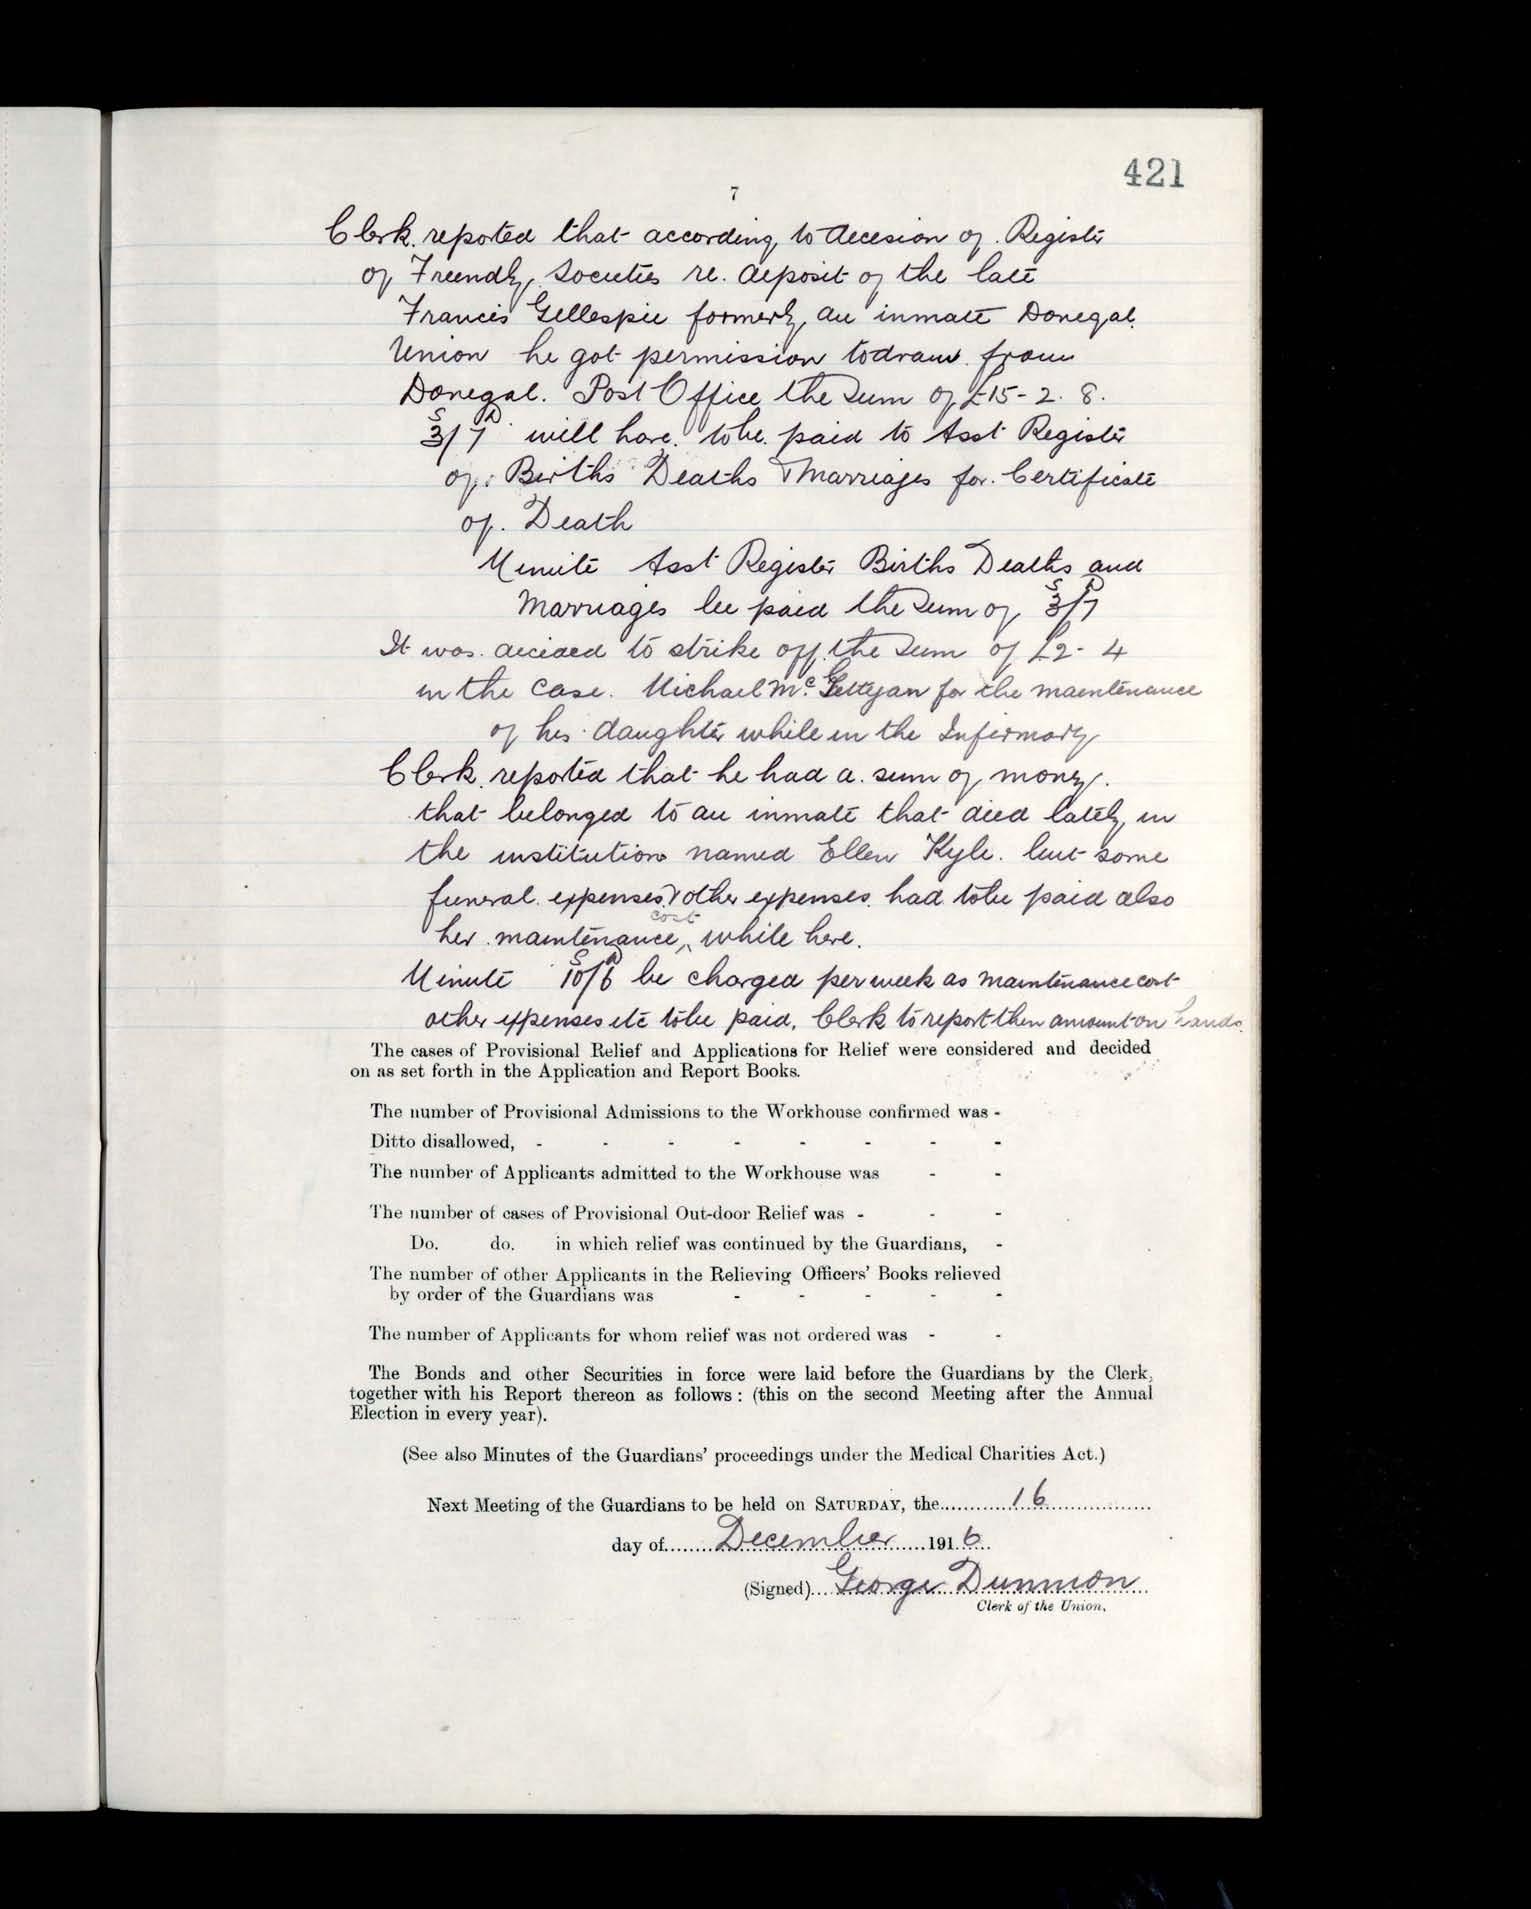 421
7
Clerk. reported that according to decision of. Register
of Friendly Societies re. deposit of the late
Francis Gillespie formerly an inmate Donegal.
Union he got permission to draw from
Donegal. Post Office the sum of £15 - 2. 8.
S D
3/7 will have. to be. paid to Asst Register
of. Births Deaths & Marriages for. Certificate
of. Death
Minute Asst Register Births Deaths and
S D
Marriages be paid the sum of 3/7
It was. decided to strike off the sum of £2 - 4
in the case. Michael Mc. Gettigan for the maintenance
of his daughter while in the Infirmary
Clerk. reported that he had a. sum of money.
that belonged to an inmate that died lately in
the institution named Ellen Kyle. but some
funeral. expenses & other expenses. had to be paid also
cost
her. maintenance ^ while here.
S D
Minute 10/6 be charged per week as maintenance cost
other expenses etc to be paid. Clerk to report then amount on hands.
The cases of Provisional Relief and Applications for Relief were considered and decided
on as set forth in the Application and Report Books.
The number of Provisional Admissions to the Workhouse confirmed was -
Ditto disallowed, - - - - - - - -
The number of Applicants admitted to the Workhouse was - -
The number of cases of Provisional Out-door Relief was - - -
Do. do. in which relief was continued by the Guardians, -
The number of other Applicants in the Relieving Officers' Books relieved
by order of the Guardians was - - - - -
The number of Applicants for whom relief was not ordered was - -
The Bonds and other Securities in force were laid before the Guardians by the Clerk,
together with his Report thereon as follows : (this on the second Meeting after the Annual
Election in every year).
(See also Minutes of the Guardians' proceedings under the Medical Charities Act.)
Next Meeting of the Guardians to be held on SATURDAY, the...........16..................
day of........December......1916...
(Signed)....George Dunnion
Clerk of the Union.